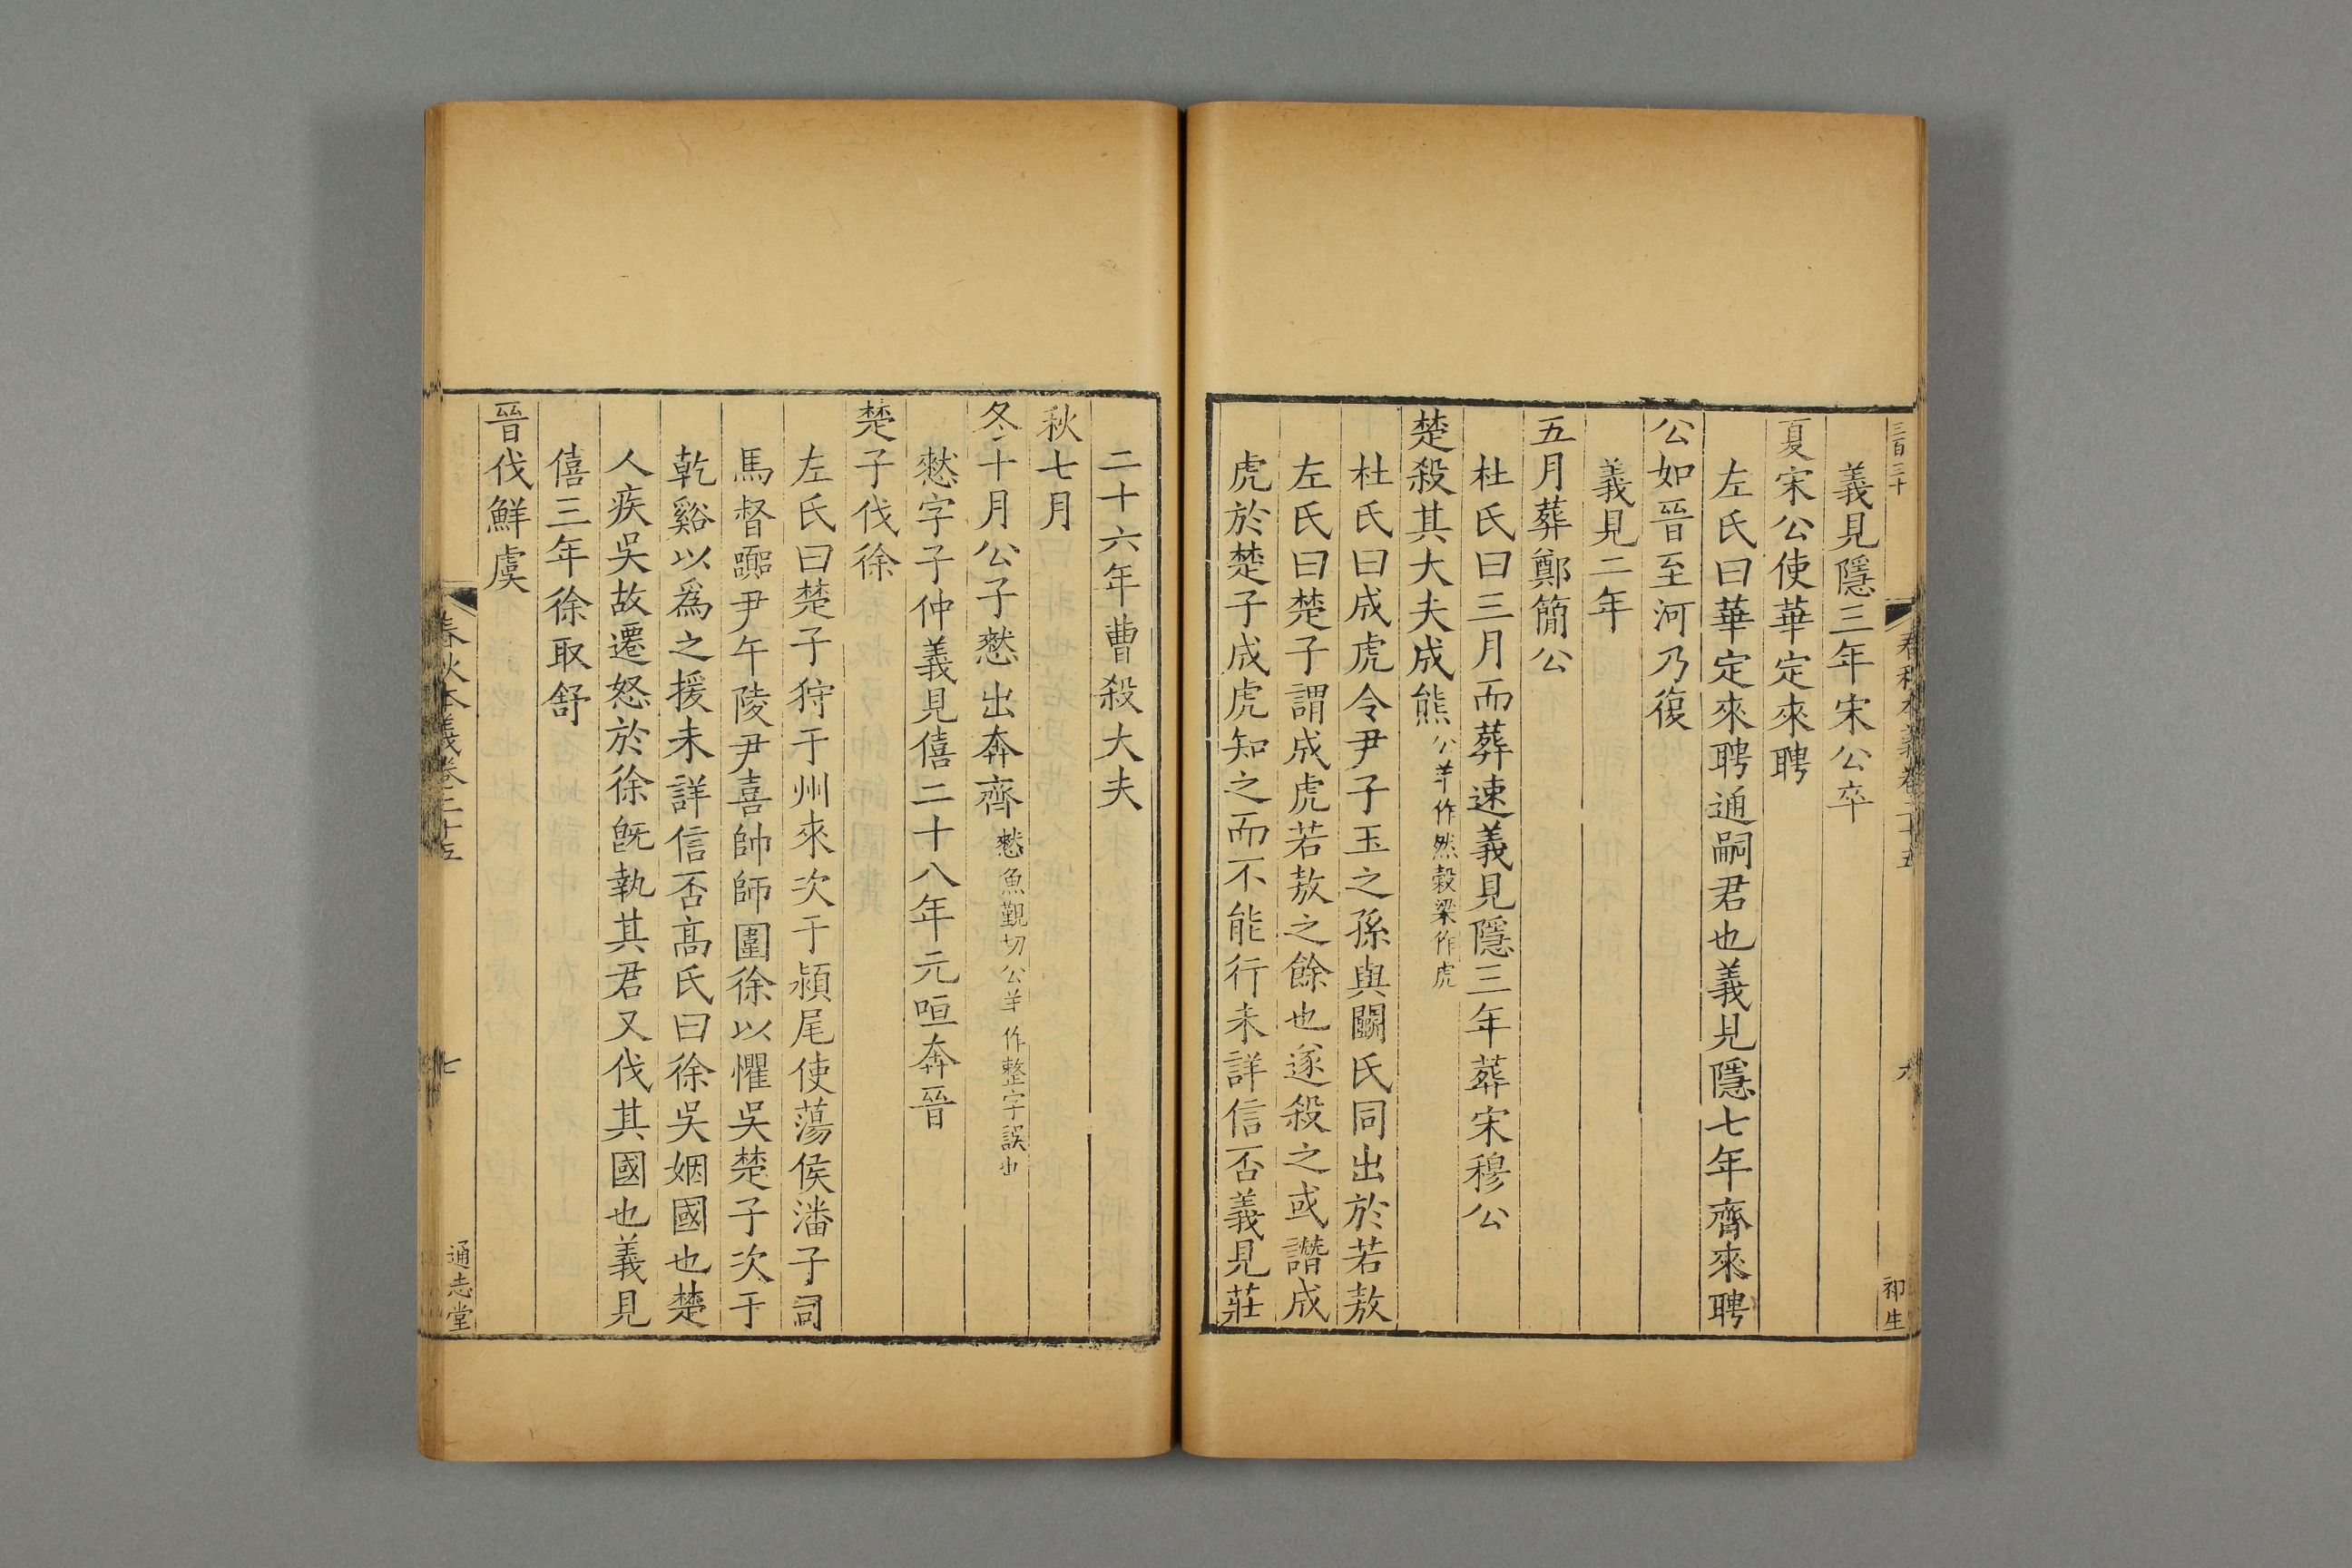 三百三十
春秋本義卷二十五
六
祁生
義見隱三年宋公卒
夏宋公使華定來聘
左氏曰華定來聘通嗣君也義見隱七年齊來聘
公如晉至河乃復
義見二年
五月葬鄭簡公
杜氏曰三月而葬速義見隱三年葬宋穆公
楚殺其大夫成熊公羊作然穀梁作虎
杜氏曰成虎令尹子玉之孫與鬭氏同出於若敖
左氏曰楚子謂成虎若敖之餘也遂殺之或譖成
虎於楚子成虎知之而不能行未詳信否義見莊
二十六年曹殺大夫
秋七月
冬十月公子憖出奔齊憖魚覲切公羊作整字誤也
憖字子仲義見僖二十八年元咺奔晉
楚子伐徐
左氏曰楚子狩于州來次于潁尾使蕩侯潘子司
馬督嚻尹午陵尹喜帥師圍徐以懼吳楚子次于
乾谿以爲之援未詳信否髙氏曰徐吳姻國也楚
人疾吳故遷怒於徐旣執其君又伐其國也義見
僖三年徐取舒
晉伐鮮虞
春秋本義卷二十五
七
通志堂